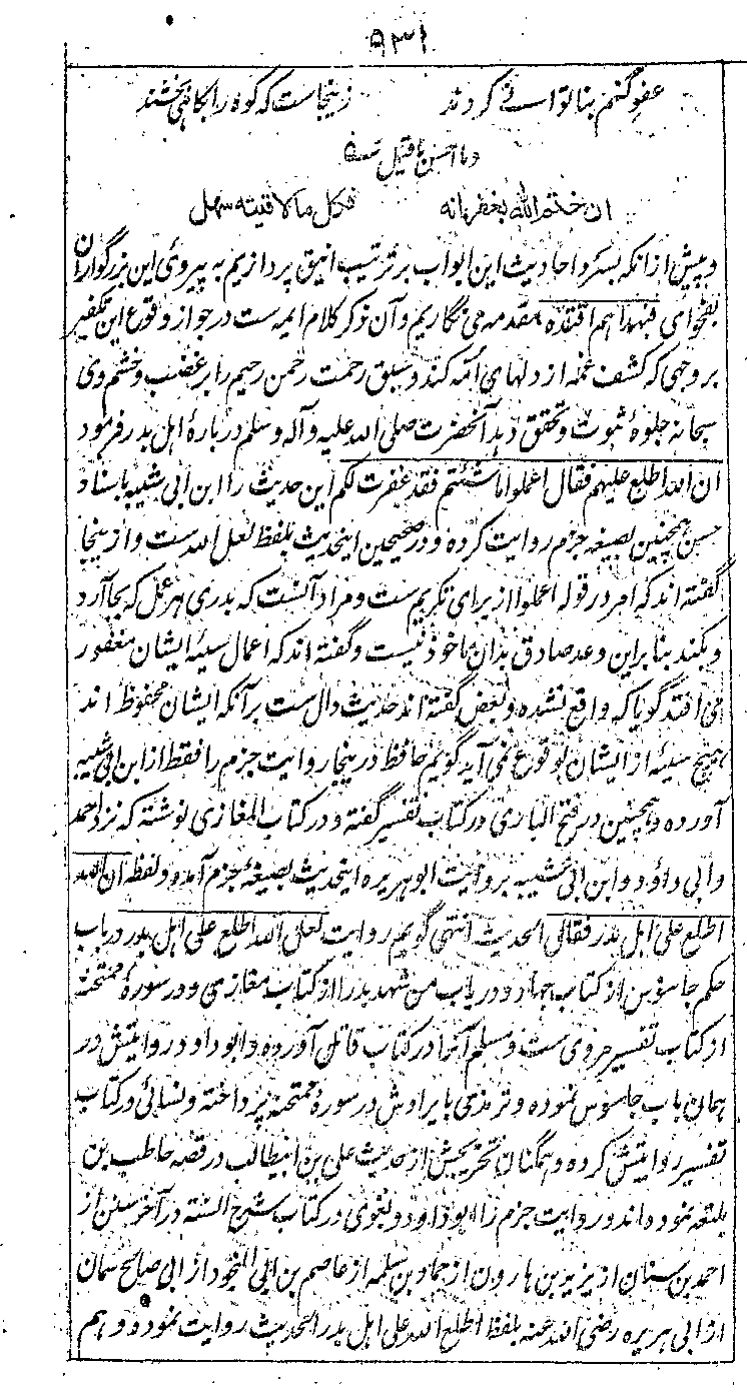 ۹۳۱
عفو گنهم بنا توانے کردند زینجاست که کوه را بکاهی بخشند
وما احسن ما قیل شعر
ان ختم الله بغفرانه فکل ما لاقیته سهل
و پیش از آنکه بسرد احادیث این ابواب بر ترتیب انیق پردازیم به پیروئ این بزرگواران
بفحوای فبهداهم اقتده مقدمه می نگاریم و آن ذکر کلام ایمه ست در جواز وقوع این تکفیر
بر وجهی که کشف غمه از دلهای ائمه کند و سبق رحمت رحمن رحیم را بر غضب و خشم وی
سبحانه جلوهٔ ثبوت و تحقق دهد آنحضرت صلی الله علیه وآله وسلم دربارهٔ اهل بدر فرمود
ان الله اطلع علیهم فقال اعملوا ما شئتم فقد غفرت لکم این حدیث را ابن ابی شیبه باسناد
حسن همچنین بصیغه جزم روایت کرده و در صحیحین اینحدیث بلفظ لعل الله ست و از ینجا
گفته اند که امر در قوله اعملوا از برای تکریم ست و مراد آنست که بدری هر عمل که بجا آرد
و بکند بنا براین وعد صادق بدان ماخوذ نیست و گفته اند که اعمال سیئهٔ ایشان مغفور
می افتد گویا که واقع نشده و بعض گفته اند حدیث دال ست بر آنکه ایشان محفوظ اند
هیچ سیئه از ایشان بوقوع نمی آید گویم حافظ در ینجا روایت جزم را فقط از ابن ابی شیبه
آورده و همچنین در فتح الباری در کتاب تفسیر گفته و در کتاب المغازی نوشته که نزد احمد
وابی داؤد و ابن ابی شیبه بروایت ابو هریره اینحدیث بصیغهٔ جزم آمده و لفظه ان الله
اطلع علی اهل بدر فقال الحدیث انتهی گویم روایت لعل الله اطلع علی اهل بدر در باب
حکم جاسوس از کتاب جهاد و در باب من شهد بدرا از کتاب مغازی و در سورهٔ ممتحنه
از کتاب تفسیر مروی ست و مسلم آنرا در کتاب آورده و ابو داود روایتش در
همان باب جاسوس نموده و ترمذی بایرادش در سورهٔ ممتحنه پرداخته و نسائی در کتاب
تفسیر روایتش کرده و همگنان تخریجش از حدیث علی بن ابیطالب در قصه حاطب بن
بلتعه نموده اند و روایت جزم را ابو داود و بغوی در کتاب شرح السنه در آخر سنن از
احمد بن سنان از یزید بن هارون از حماد بن سلمه از عاصم بن ابی النجود از ابی صالح سمان
از ابی هریره رضی الله عنه بلفظ اطلع الله علی اهل بدر الحدیث روایت نموده و هم